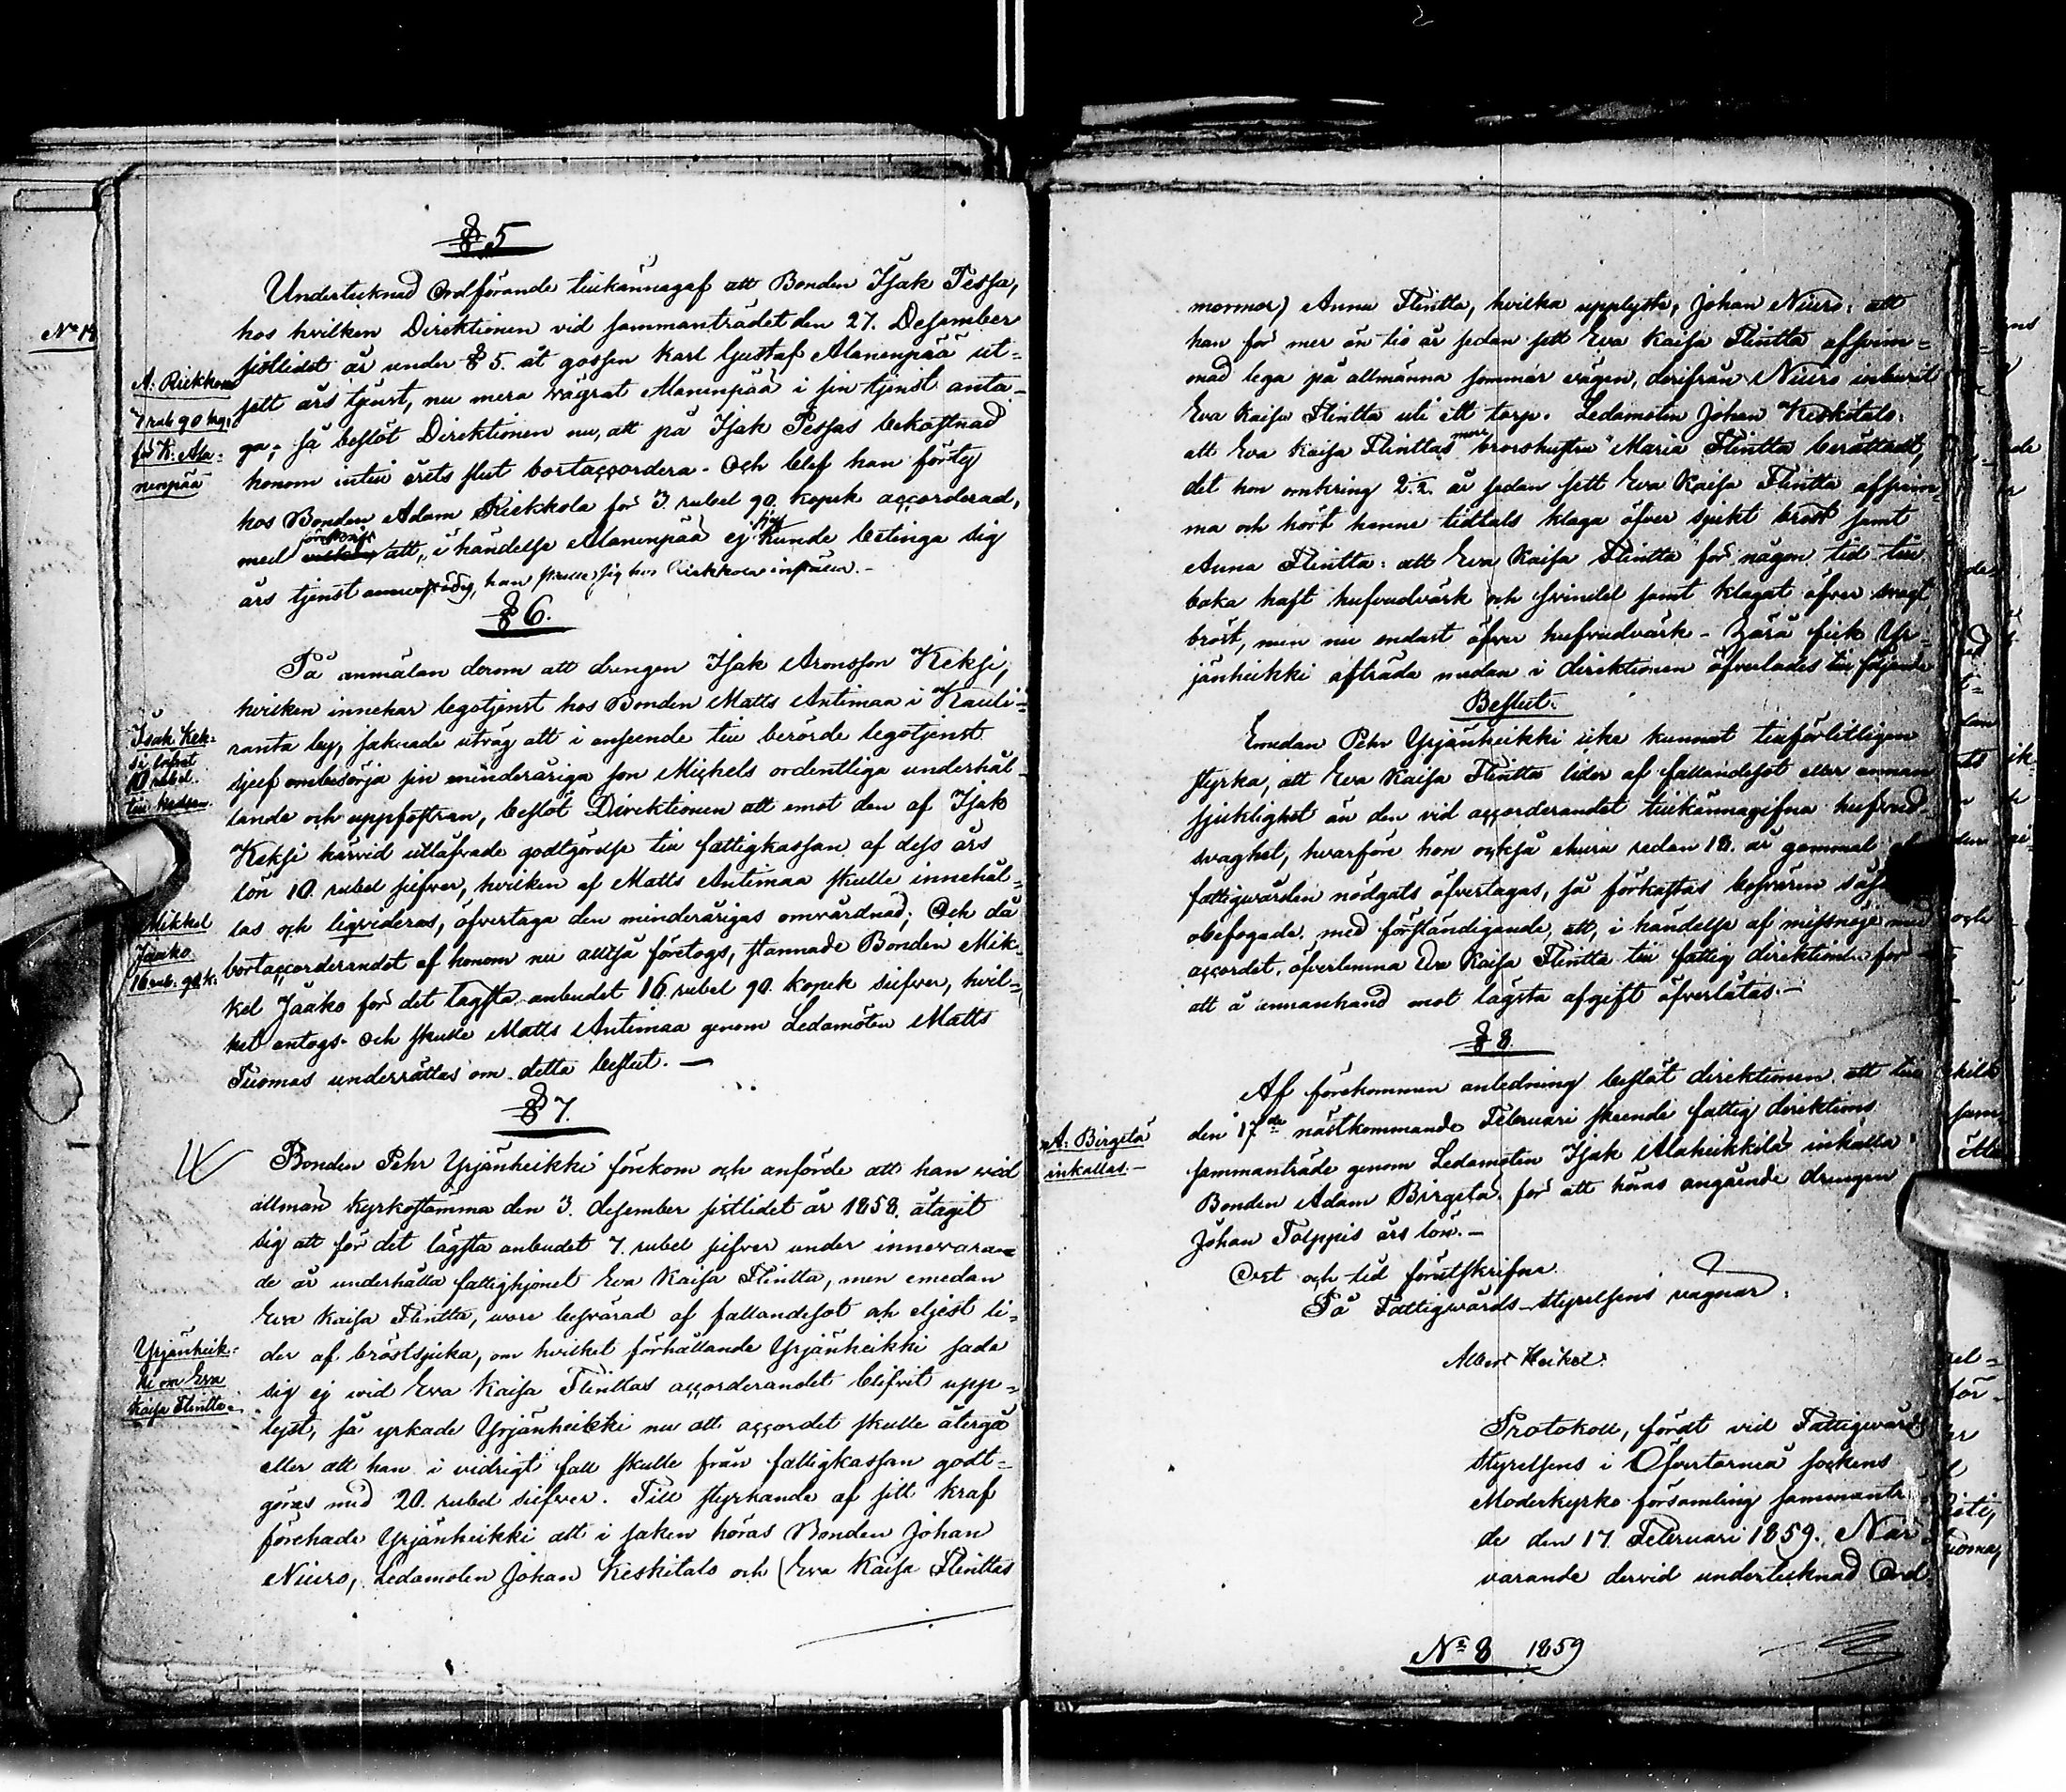 § 5
Undertecknad Ordförande tillkännagaf att Bonden Isak Pessa,
hos hvilken Direktionen vid sammanträdet den 27. Desember
sistlidet år under § 5. åt gossen Karl Gustaf Alanenpää ut-
sett års tjenst, nu mera vägrat Alanenpää i sin tjenst anta-
ga; så beslöt Direktionen nu, att på Isak Pessas bekostnad
honom intill årets slut bortaccordera. Och blef han förty
hos Bonden Adam Riekkola för 3 rubel 90. kopek accorderad,
med att, i händelse Alanenpää ej kunde betinga sig
års tjenst annorstädes, han skulle sig hos Riekkola inställa.-
A: Riekkola
3 rub 90 kop.
för K: Ala-
nenpää
No 14
§ 6.
På anmälan derom att drengen Isak Aronsson Keksi,
hvilken innehar legotjenst hos Bonden Matts Antimaa i Kauli-
ranta by, saknade utväg att i anseende till berörde legotjenst
sjelf ombesörja sin minderåriga son Michels ordentliga underhål-
lande och uppfostran, beslöt Direktionen att emot den af Isak
Keksi härvid utläfvade godtgörelse till fattigkassan af dess års
lön 10. rubel silfver, hvilken af Matts Antimaa skulle innehål-
las och liqvideras, öfvertaga den minderåriges omvårdnad; Och då
bortaccorderandet af honom nu alltså företogs, stannade Bonden Mik-
kel Jaako för det lägsta anbudet 16 rubel 90. kopek silfver, hvil-
ket antogs. Och skulle Matts Antimaa genom Ledamoten Matts
Tuomas underrättas om detta beslut. —
Isak Kek-
si lofvat
10 rubel.
Mikkel
Jaako
16 rub. 90 k.
§ 7.
Bonden Pehr Yrjänheikki förekom och anförde att han vid
allmän Kyrkostämma den 3. desember sistlidet år 1858. åtagit
sig att för det lägsta anbudet 7. rubel silfver under innevaran-
de år underhålla fattighjonet Eva Kaisa Flintta, men emedan
Eva Kaisa Flintta, vore besvärad af fallandesot och eljest li-
der af bröstsjuka, om hvilket förhållande Yrjänheikki sade
sig ej vid Eva Kaisa Flinttas accorderandet blifvit upp-
lyst, så yrkade Yrjänheikki nu att accordet skulle återgå
eller att han i vidrigt fall skulle från fattigkassan godt-
göras med 20. rubel silfver. Till styrkande af sitt kraf
förehade Yrjänheikki att i saken höras Bonden Johan
Niuro, Ledamoten Johan Keskitalo och (Eva Kaisa Flinttas
Yrjänheik-
ki om Eva
Kaisa Flintta.
mormor) Anna Flintta, hvilka upplyste, Johan Niuro: att
han för mer än tio år sedan sett Eva Kaisa Flintta afsvim-
mad lega på allmänna sommar vägen, derifrån Niuro inburit
Eva Kaisa Flintta uti ett torp. Ledamoten Johan Keskitalo:
att Eva Kaisa Flinttas morbrorshustru Maria Flintta berättadt,
det hon omkring 2.2. år sedan sett Eva Kaisa Flintta afsvim-
ma och hört henne tidtals klaga öfver sjukt bröst samt
Anna Flintta: att Eva Kaisa Flintta för någon tid till
baka haft hufvudvärk och svindel samt klagat öfver svagt
bröst, men nu endast öfver hufvudvärk. - Härå fick Yr-
jänheikki afträda medan i direktionen öfverlades till följande
Beslut.
Emedan Pehr Yrjänheikki icke kunnat tillförlitligen
styrka, att Eva Kaisa Flintta lider af fallandesot eller annan
sjuklighet än den vid accorderandet tillkännagifna hufvud-
svaghet, hvarföre hon också ehuru redan 18. år gammal
fattigvården nödgats öfvertagas, så förkastas besvären
obefogade, med förständigande, att, i händelse af missnöje med
accordet, öfverlemna Eva Kaisa Flintta till fattig direktionen för
att å annanhand mot lägsta afgift öfverlåtas.-
§ 8.
Af förekommen anledning beslöt direktionen att till
den 17de nästkommande Februari skeende fattig direktions
sammanträde genom Ledamoten Isak Alaheikkilä inkalla
Bonden Adam Birgeta, för att höras angående drengen
Johan Tolppis års lön.-
A: Birgeta
inkallas.-
Ort och tid förutskrifne
På Fattigvårds-Styrelsens vägnar:
Albert Heikel.
Protokoll, fördt vid Fattigvårds
Styrelsens i Öfvertorneå sockens
Moderkyrko församling sammanträ-
de den 17. Februari 1859. När-
varande dervid undertecknad Ord-
No 8 1859